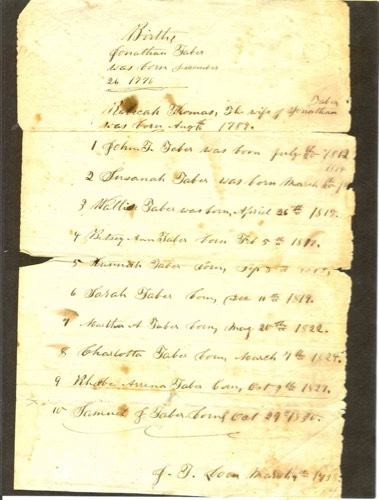 Births
Jonathan Taber
was born December
26 1776
Taber
Thomas, The wife of Jonathan
was born Augth 1789.
1 John T. Taber was born July 1812
2 Susanah Taber was born March
3 Taber was born, April 26th
4 Betsey Ann Taber born Feb 5th
5 Hannah Taber born, Sep
6 Sarah Taber born, Dec 11th 1819.
7 Martha A Taber born, May 20th 1822.
8 Charlotta Taber born, March 7th 1824.
9 Taber born, Oct 9th 1827.
10 Samuel J Taber born Oct 29th
J. T. March